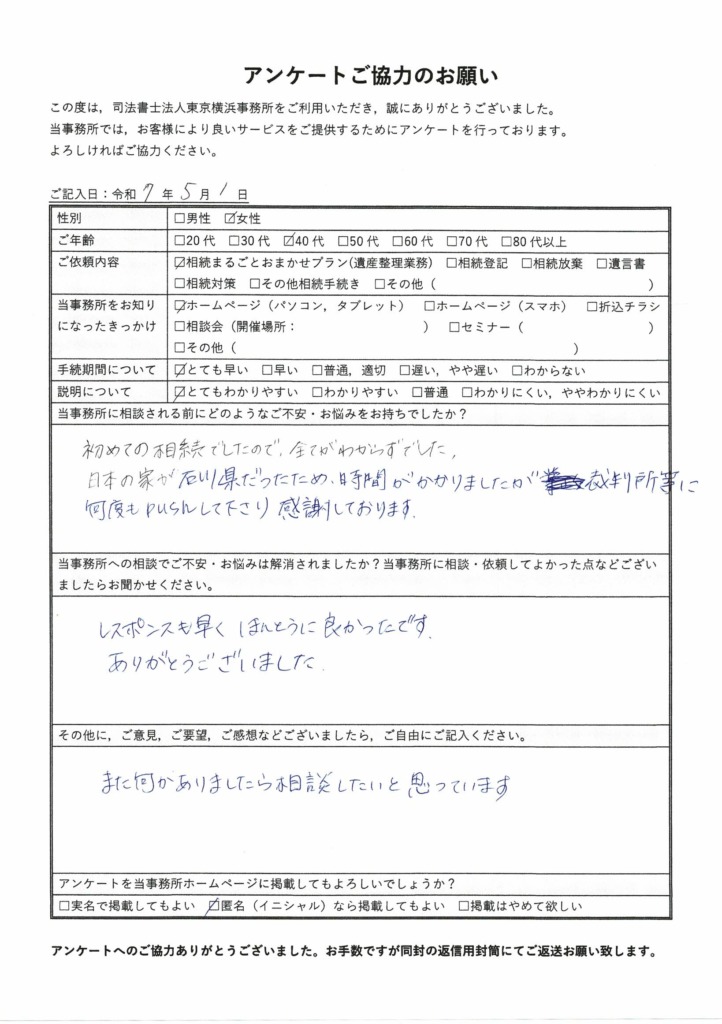 アンケートご協力のお願い
この度は，司法書士法人東京横浜事務所をご利用いただき，誠にありがとうございました。
当事務所では，お客様により良いサービスをご提供するためにアンケートを行っております。
よろしければご協力ください。
ご記入日：令和 7 年 5 月 1 日
性別 □男性 ☑女性
ご年齢 □20代 □30代 ☑40代 □50代 □60代 □70代 □80代以上
ご依頼内容 ☑相続まるごとおまかせプラン(遺産整理業務) □相続登記 □相続放棄 □遺言書
□相続対策 □その他相続手続き □その他（ ）
当事務所をお知り ☑ホームページ（パソコン，タブレット） □ホームページ（スマホ） □折込チラシ
になったきっかけ □相談会（開催場所： ） □セミナー（ ）
□その他（ ）
手続期間について ☑とても早い □早い □普通，適切 □遅い，やや遅い □わからない
説明について ☑とてもわかりやすい □わかりやすい □普通 □わかりにくい，ややわかりにくい
当事務所に相談される前にどのようなご不安・お悩みをお持ちでしたか？
初めての相続でしたので、全てがわからずでした。
日本の家が石川県だったため、時間がかかりましたが 裁判所等に
何度もpushして下さり 感謝しております。
当事務所への相談でご不安・お悩みは解消されましたか？当事務所に相談・依頼してよかった点などござい
ましたらお聞かせください。
レスポンスも早く ほんとうに良かったです。
ありがとうございました。
その他に，ご意見，ご要望，ご感想などございましたら，ご自由にご記入ください。
また何かありましたら相談したいと思っています
アンケートを当事務所ホームページに掲載してもよろしいでしょうか？
□実名で掲載してもよい ☑匿名（イニシャル）なら掲載してもよい □掲載はやめて欲しい
アンケートへのご協力ありがとうございました。お手数ですが同封の返信用封筒にてご返送お願い致します。